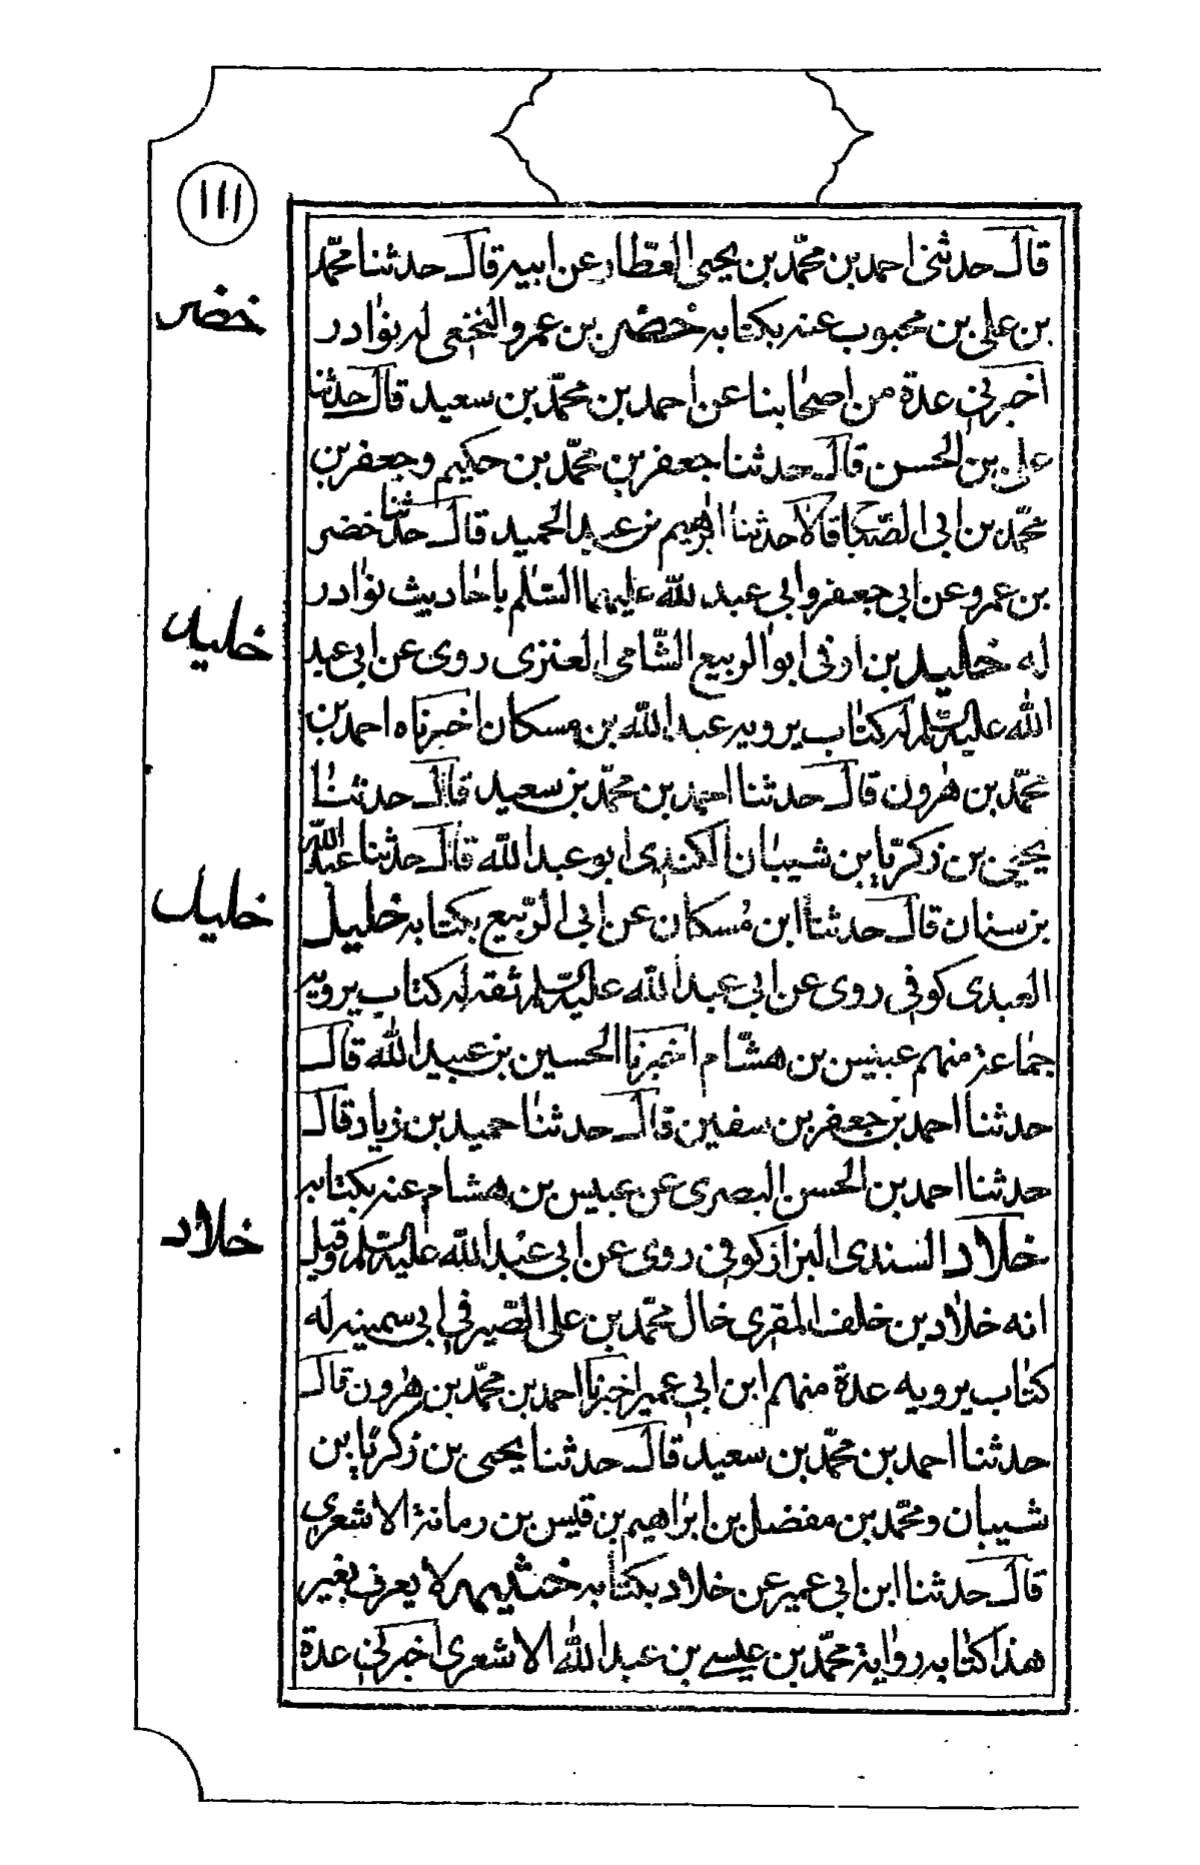 ١١١
قال حدثنى احمد بن محمّد بن يحيى العطّار عن ابيه قال حدثنا محمّد
خضر
بن على بن محبوب عنه بكتابه خضر بن عمرو النخعى له نوادر
اخبرنى عدة من اصحابنا عن احمد بن محمّد بن سعيد قال حدثنا
على بن الحسن قال حدثنا جعفر بن محمّد بن حكيم وجعفر بن
محمّد بن ابى الصّباح قالا حدثنا ابراهيم بن عبد الحميد قال حدثنا خضر
بن عمرو عن ابى جعفر وابى عبد الله عليهما السّلم باحاديث نوادر
خليد
له خليد بن اوفى ابو الربيع الشّامى العنزى روى عن ابى عبد
الله عليه السّلم له كتاب يرويه عبد الله بن مسكان اخبرناه احمد بن
محمّد بن هرون قال حدثنا احمد بن محمّد بن سعيد قال حدثنا
يحيى بن زكريّا بن شيبان الكندى ابو عبد الله قال حدثنا عبد الله
خليل
بن سنان قال حدثنا ابن مُسكان عن ابى الرّبيع بكتابه خليل
العبدى كوفى روى عن ابى عبد الله عليه السّلم ثقة له كتاب يرويه
جماعة منهم عبيس بن هشّام اخبرنا الحسين بن عبيد الله قال
حدثنا احمد بن جعفر بن سفين قال حدثنا حميد بن زياد قال
حدثنا احمد بن الحسن البصرى عن عبيس بن هشام عنه بكتابه
خلاد
خلاد السندى البزاز كوفى روى عن ابى عبد الله عليه السّلم وقيل
انه خلاد بن خلف المقرى خال محمّد بن على الصّيرفى ابى سمينه له
كتاب يرويه عدة منهم ابن ابى عمير اخبرنا احمد بن محمّد بن هرون قال
حدثنا احمد بن محمّد بن سعيد قال حدثنا يحيى بن زكريّا بن
شيبان ومحمّد بن مفضل بن ابراهيم بن قيس بن رمانة الاشعرى
قال حدثنا ابن ابى عمير عن خلاد بكتابه خثيمه لا يعرف بغير
هذا كتابه رواية محمّد بن عيسى بن عبد الله الاشعرى اخبرنى عدة